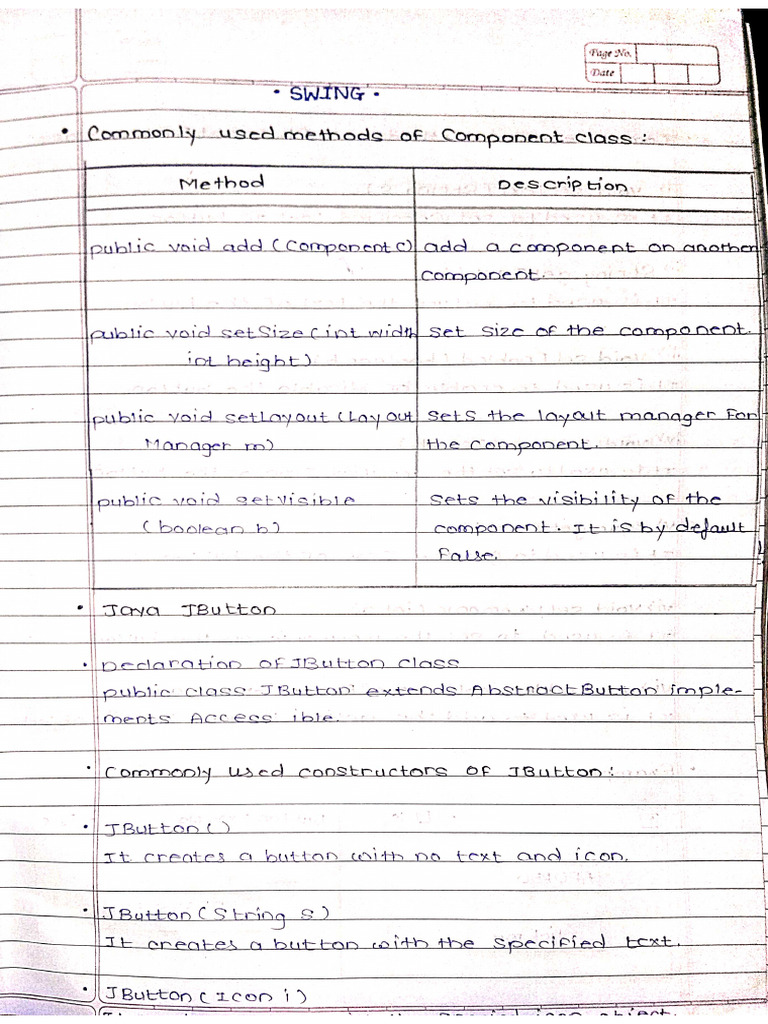 Page No.
Date
• SWING •
• Commonly used methods of Component class:
Method Description
public void add (Component c) add a component on another
component.
public void setSize (int width set size of the component.
int height)
public void setLayout (Layout sets the layout manager for
Manager m) the component.
public void setVisible sets the visibility of the
(boolean b) component. It is by default
false.
• Java JButton
• Declaration of JButton class
public class JButton extends AbstractButton imple-
ments Access ible.
• Commonly used constructors of JButton:
• JButton()
It creates a button with no text and icon.
• JButton (String s)
It creates a button with the specified text.
• JButton (Icon i)
icon object.